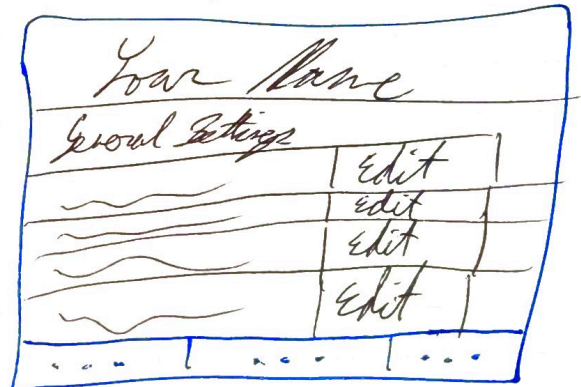 Your Name
General Settings
Edit
Edit
Edit
Edit